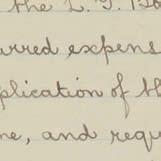 the L. T.
rred, expens
plication of th
ne, and requ